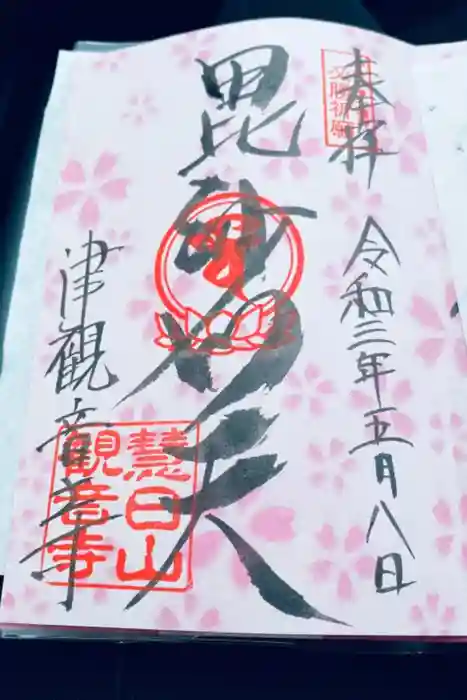 奉拝
令和三年五月八日
毘沙門天
津観音寺
慧日山
観音寺